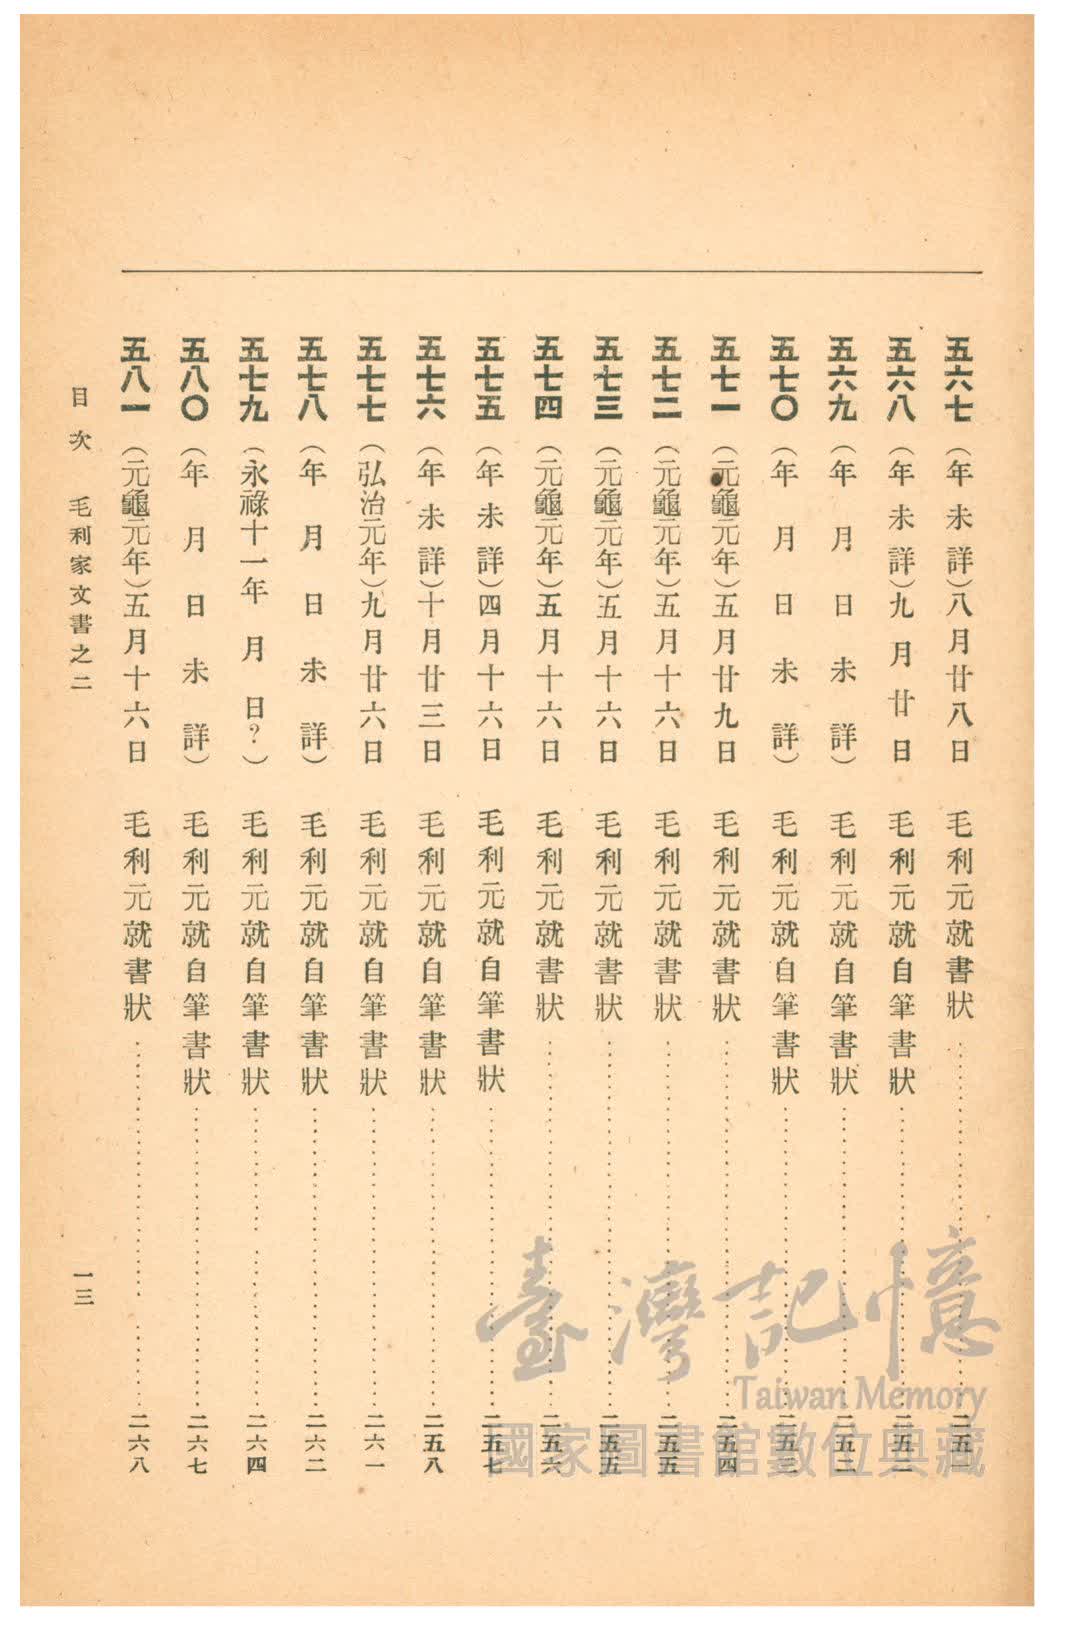 五六七 (年未詳)八月廿八日 毛利元就書狀……二五一
五六八 (年未詳)九月廿日 毛利元就自筆書狀……二五二
五六九 (年月日未詳) 毛利元就自筆書狀……二五二
五七〇 (年月日未詳) 毛利元就自筆書狀……二五三
五七一 (元龜元年)五月廿九日 毛利元就書狀……二五四
五七二 (元龜元年)五月十六日 毛利元就書狀……二五五
五七三 (元龜元年)五月十六日 毛利元就書狀……二五五
五七四 (元龜元年)五月十六日 毛利元就書狀……二五六
五七五 (年未詳)四月十六日 毛利元就自筆書狀……二五七
五七六 (年未詳)十月廿三日 毛利元就自筆書狀……二五八
五七七 (弘治元年)九月廿六日 毛利元就自筆書狀……二六一
五七八 (年月日未詳) 毛利元就自筆書狀……二六二
五七九 (永祿十一年月日?) 毛利元就自筆書狀……二六四
五八〇 (年月日未詳) 毛利元就自筆書狀……二六七
五八一 (元龜元年)五月十六日 毛利元就書狀……二六八
目次 毛利家文書之二 一三
臺灣記憶
Taiwan Memory
國家圖書館數位典藏